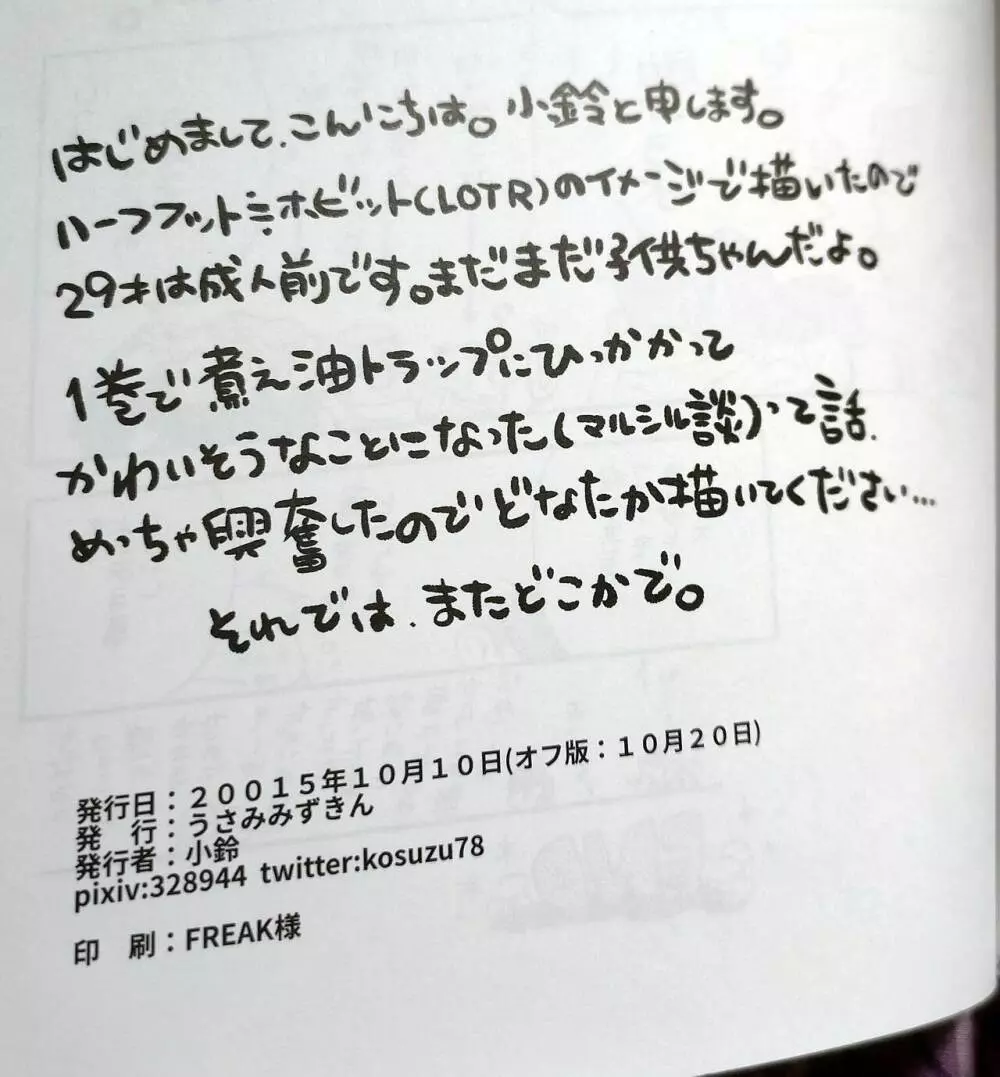 はじめまして、こんにちは。小鈴と申します。
ハーフフット≒ホビット(LOTR)のイメージで描いたので
29才は成人前です。まだまだ子供ちゃんだよ。
1巻で煮え油トラップにひっかかって
かわいそうなことになった(マルシル談)って話、
めっちゃ興奮したのでどなたか描いてください…
それでは、またどこかで。
発行日：２００１５年１０月１０日(オフ版：１０月２０日)
発　行：うさみみずきん
発行者：小鈴
pixiv:328944 twitter:kosuzu78
印　刷：FREAK様